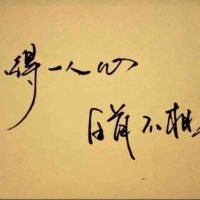 得一人心
白首不相